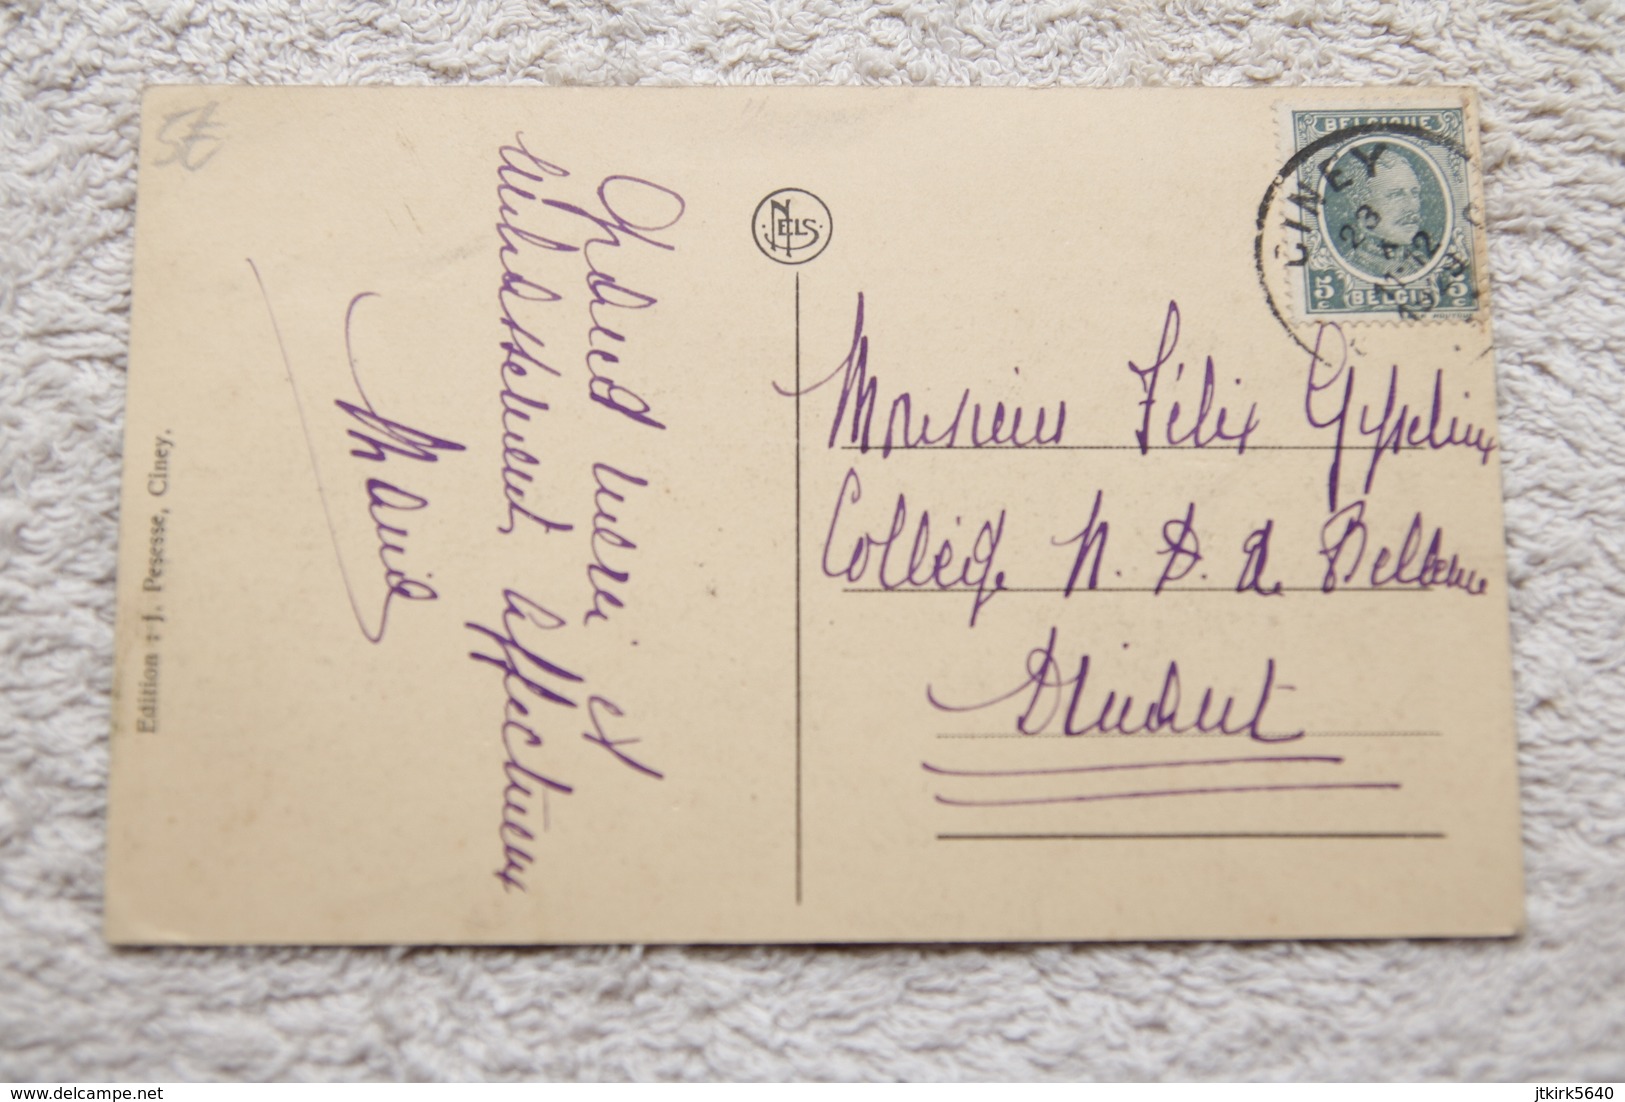 5€
Grand merci et
bien affectueux
Maria
Edition : J. Pesesse, Ciney.
NELS
BELGIQUE
5c BELGIË 5c
CINEY
23
12
Monsieur Félix Gysselinx
Collège N. D. de Bellevue
Dinant
delcampe.net
jtkirk5640